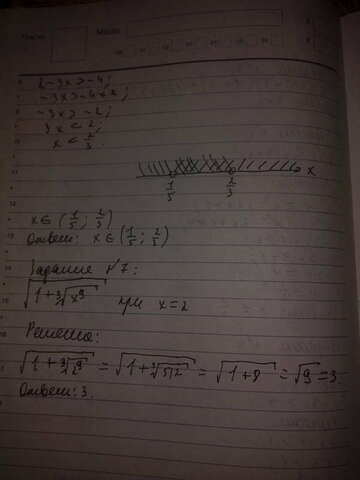 Число
Место
2-3x>-4;
-3x>-4+2;
-3x>-2;
3x<2;
x<2/3.
x
1/5 2/3
x∈(1/5; 2/3)
Ответ: x∈(1/5; 2/3)
Задание №7:
√(1+∛(x⁹)) при x=2
Решение:
√(1+∛(2⁹)) = √(1+∛512) = √(1+8) = √9 = 3.
Ответ: 3.